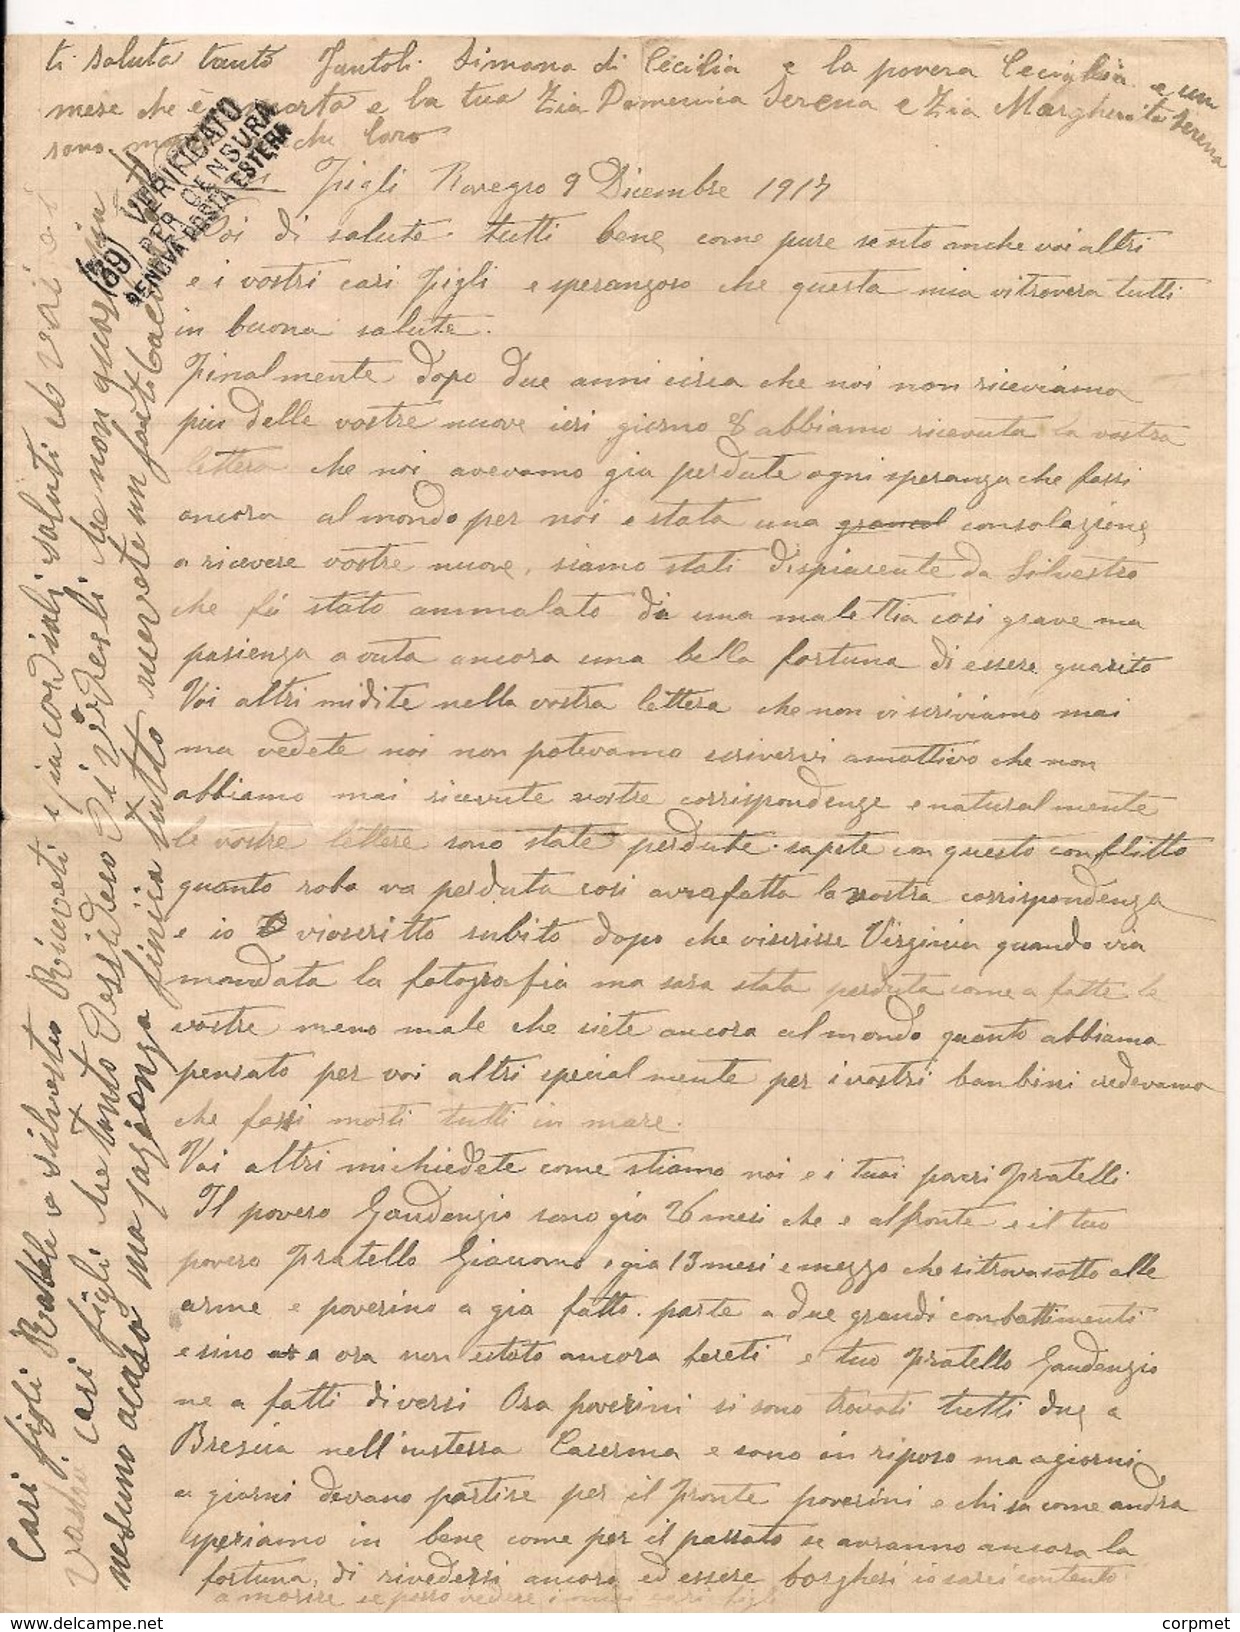 ti saluta tanto Fantoli Simona di Cecilia e la povera Cecilia e un
mese che è morta e la tua Zia Domenica Serena e Zia Margherita Serena
sono che loro
(39) VERIFICATO
PER CENSURA
GENOVA POSTA ESTERA
Figli Rovegro 9 Dicembre 1917
Noi di salute tutti bene come pure sento anche voi altri
e i vostri cari figli e speranzoso che questa mia vi trovera tutti
in buona salute.
Finalmente dopo due anni circa che noi non riceviamo
piu delle vostre nuove ieri giorno 8 abbiamo ricevuta la vostra
lettera che noi avevamo gia perdute ogni speranza che fossi
ancora al mondo per noi e stata una consolazione
a ricevere vostre nuove, siamo stati dispiacente da Silvestro
che fù stato ammalato di una malettia cosi grave ma
pasienza a vuta ancora una bella fortuna di essere guarito
Voi altri mi dite nella vostra lettera che non vi scriviamo mai
ma vedete noi non potevamo scrivervi a mottivo che non
abbiamo mai ricevute vostre corrispondenze e naturalmente
le vostre lettere sono state perdute. sapete con questo conflitto
quanto roba va perduta cosi avra fatta la nostra corrispondenza
e io vio scritto subito dopo che vi scrisse Virginia quando via
mandata la fotografia ma sara stata perduta come a fatte le
vostre meno male che siete ancora al mondo quanto abbiamo
pensato per voi altri specialmente per i vostri banbini credevamo
che fossi morti tutti in mare.
Voi altri mi chiedete come stiamo noi e i tuoi poveri fratelli
Il povero Gaudenzio sono gia 26 mesi che e al fronte e il tuo
povero fratello Giacomo, e gia 13 mesi e mezzo che si trova sotto alle
arme e poverino a gia fatto parte a due grandi conbattimenti
e sino a ora non e stato ancora fereti e tuo fratello Gaudenzio
ne a fatti diversi Ora poverini si sono trovati tutti due a
Brescia nell'instessa Caserma e sono in riposo ma a giorni
a giorni devano partire per il fronte poverini e chi sa come andra
speriamo in bene come per il passato se avranno ancora la
fortuna, di rivedersi ancora ed essere borghesi io sarei contento
a morire se posso vedere i miei cari figli
Cari figli e silvestro Riceveti i pia cordiali saluti
vostre cari figli che tanto Dessidero Di vederli che non quasi
nesuno acaso ma pazienza finira tutto ricevete un forte bacio